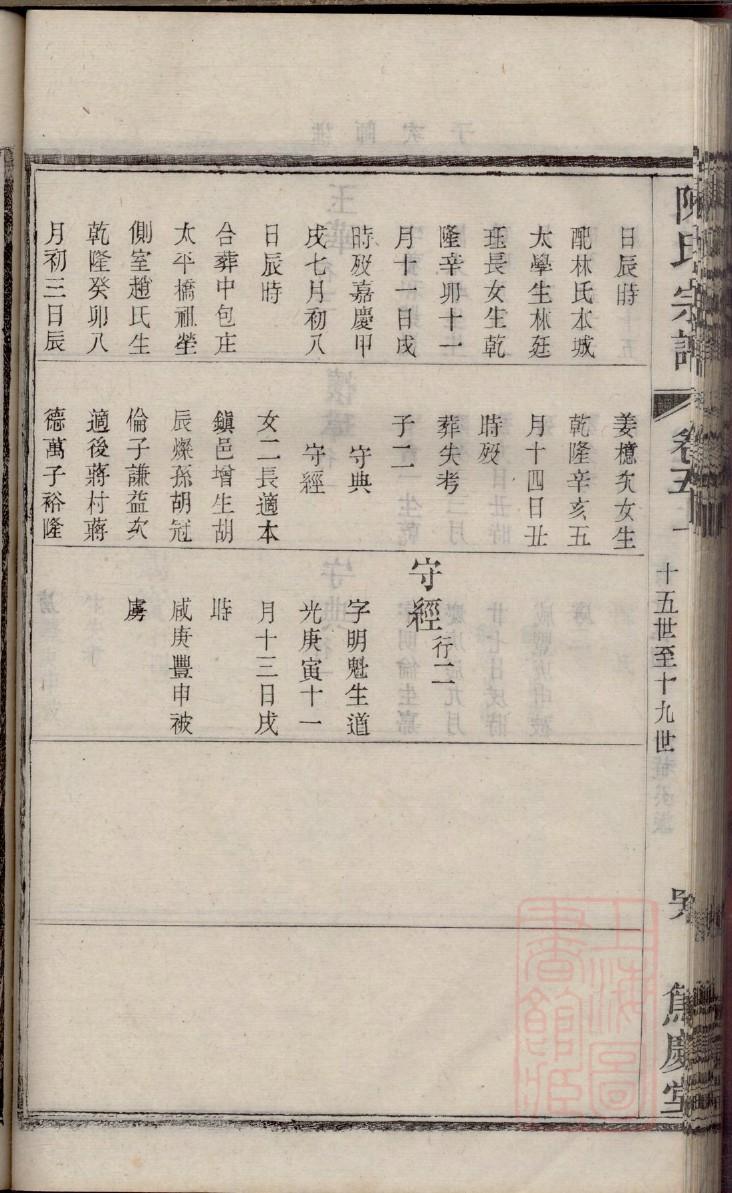 陳氏宗譜
卷五
十五世至十九世
日辰時
配林氏本城
太學生林廷
珏長女生乾
隆辛卯十一
月十一日戌
時歿嘉慶甲
戌七月初八
日辰時
合葬中包庄
太平橋祖塋
側室趙氏生
乾隆癸卯八
月初三日辰
姜檍次女生
乾隆辛亥五
月十四日丑
時歿
葬失考
子二
守典
守經
女二長適本
鎭邑增生胡
辰燦孫胡冠
倫子謙益次
適後蔣村蔣
德萬子裕隆
守經行二
字明魁生道
光庚寅十一
月十三日戌
時
咸庚豐申被
虜
上海圖書館藏